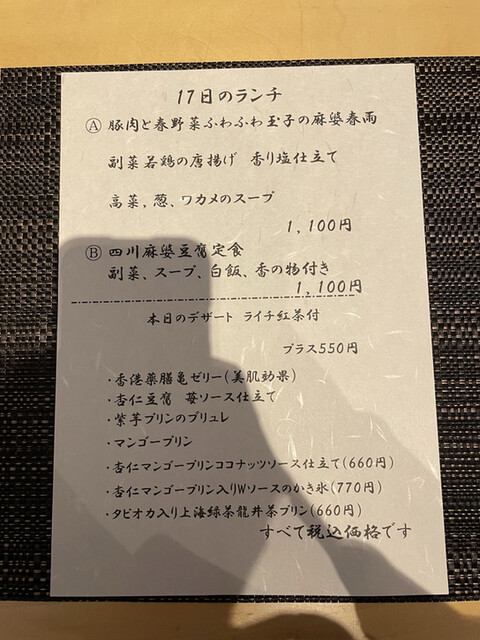 17日のランチ
Ⓐ 豚肉と春野菜ふわふわ玉子の麻婆春雨
副菜若鶏の唐揚げ 香り塩仕立て
高菜、葱、ワカメのスープ
1,100円
Ⓑ 四川麻婆豆腐定食
副菜、スープ、白飯、香の物付き
1,100円
本日のデザート ライチ紅茶付
プラス550円
・香港薬膳亀ゼリー(美肌効果)
・杏仁豆腐 苺ソース仕立て
・紫芋プリンのブリュレ
・マンゴープリン
・杏仁マンゴープリンココナッツソース仕立て(660円)
・杏仁マンゴープリン入りWソースのかき氷(770円)
・タピオカ入り上海緑茶龍井茶プリン(660円)
すべて税込価格です